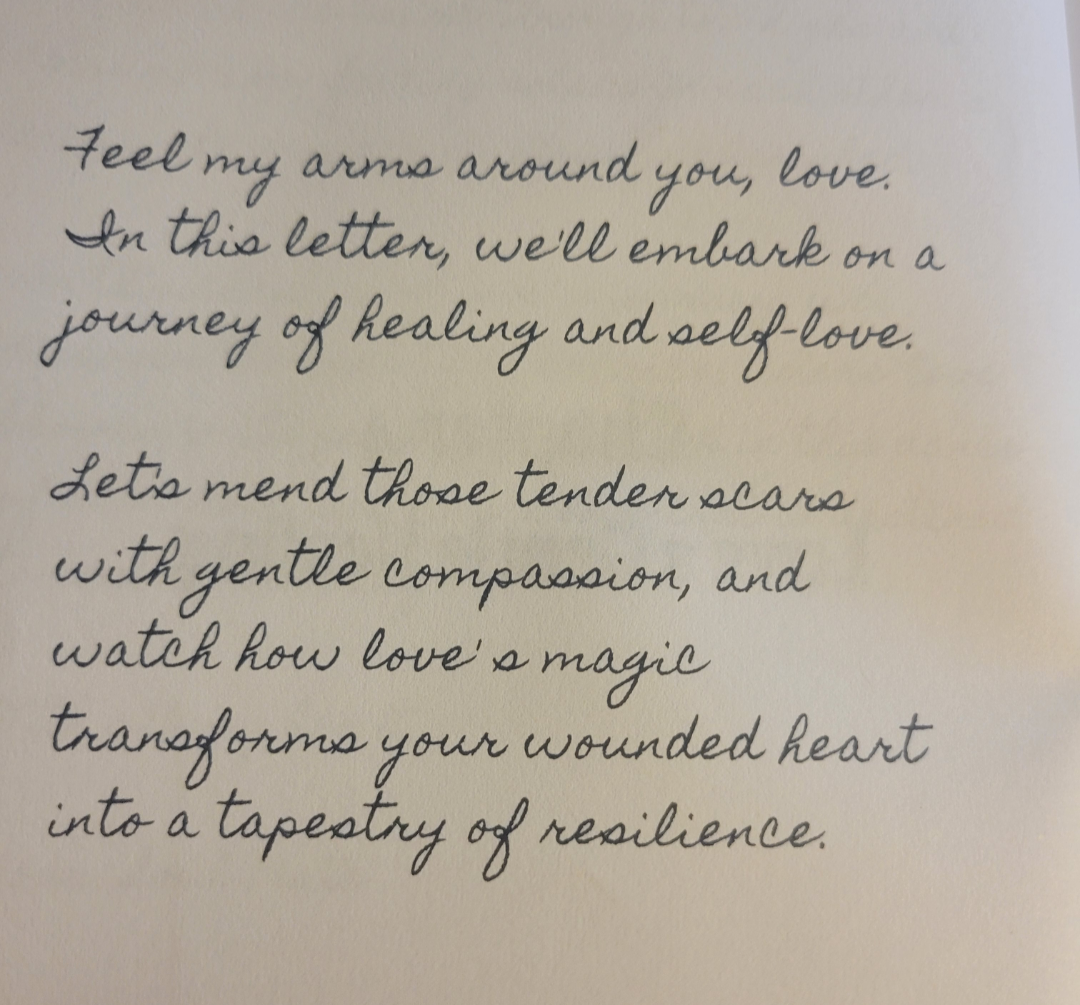 Feel my arms around you, love.
In this letter, we'll embark on a
journey of healing and self-love.
Let's mend those tender scars
with gentle compassion, and
watch how love's magic
transforms your wounded heart
into a tapestry of resilience.